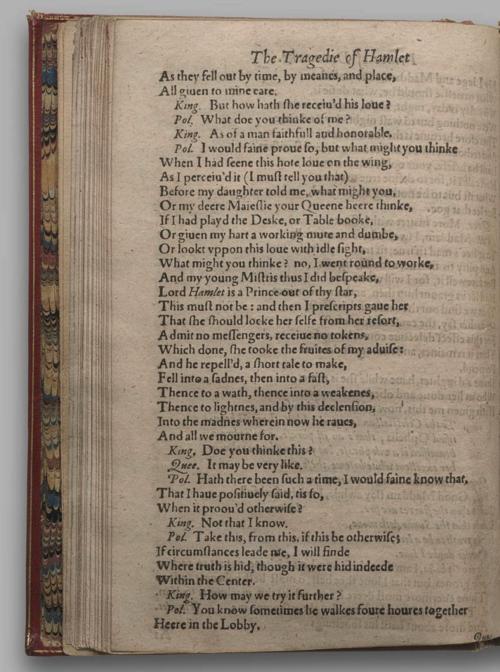 The Tragedie of Hamlet
As they fell out by time, by meanes, and place,
All giuen to mine eare.
King. But how hath ſhe receiu'd his loue?
Pol. What doe you thinke of me?
King. As of a man faithfull and honorable.
Pol. I would faine proue ſo, but what might you thinke
When I had ſeene this hote loue on the wing,
As I perceiu'd it (I muſt tell you that)
Before my daughter told me, what might you,
Or my deere Maieſtie your Queene heere thinke,
If I had playd the Deske, or Table booke,
Or giuen my hart a working mute and dumbe,
Or lookt vppon this loue with idle ſight,
What might you thinke? no, I went round to worke,
And my young Miſtris thus I did beſpeake,
Lord Hamlet is a Prince out of thy ſtar,
This muſt not be: and then I preſcripts gaue her
That ſhe ſhould locke her ſelfe from her reſort,
Admit no meſſengers, receiue no tokens,
Which done, ſhe tooke the fruites of my aduiſe:
And he repell'd, a ſhort tale to make,
Fell into a ſadnes, then into a faſt,
Thence to a wath, thence into a weakenes,
Thence to lightnes, and by this declenſion,
Into the madnes wherein now he raues,
And all we mourne for.
King, Doe you thinke this?
Quee. It may be very like.
Pol. Hath there been ſuch a time, I would faine know that,
That I haue poſitiuely ſaid, tis ſo,
When it proou'd otherwiſe?
King. Not that I know.
Pol. Take this, from this, if this be otherwiſe;
If circumſtances leade me, I will finde
Where truth is hid, though it were hid indeede
Within the Center.
King. How may we try it further?
Pol. You know ſometimes he walkes foure houres together
Heere in the Lobby.